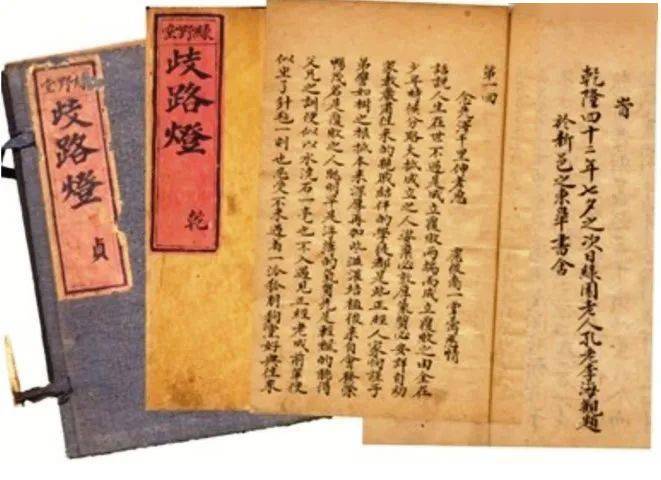 綠野堂
歧路燈
貞
綠野堂
歧路燈
乾
第一回
念先澤千里伸孝思 慮後裔一掌寓慈情
話說人生在世不過是成立覆敗兩端而成立覆敗之由全在
少年時候分路大抵成立之人姿稟必敦厚氣質必安詳自幼
家教嚴肅往來的親戚結伴的學徒都是些正經人家恂謹子
弟譬如樹之根柢本來深厚再加些滋灌培植後來自會發榮
暢茂若是覆敗之人聰明早是浮薄的氣質先是輕飄的聽得
父兄之訓便似以水澆石一毫也不入遇見正經老成前輩便
似坐了針毡一刻也忍受不來遇着一狐朋狗黨好與往來
旹
乾隆四十二年七夕之次日綠園老人孔老李海觀題
於新邑之東皋書舍